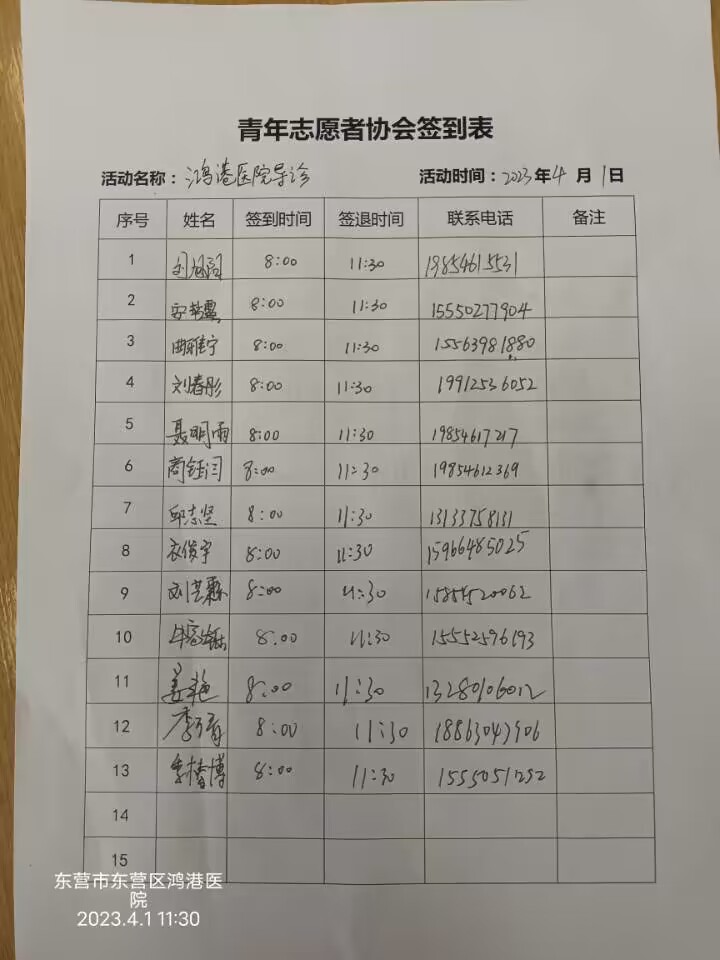 青年志愿者协会签到表
活动名称：鸿港医院导诊 活动时间：2023年4月1日
序号 姓名 签到时间 签退时间 联系电话 备注
1 8:00 11:30 19854615531
2 8:00 11:30 15550277904
3 曲雅宁 8:00 11:30 15563981880
4 刘春彤 8:00 11:30 19912536052
5 聂明雨 8:00 11:30 19854617217
6 商钰闫 8:00 11:30 19854612369
7 邱志坚 8:00 11:30 13133758131
8 衣俊宇 8:00 11:30 15966485025
9 8:00 11:30 15854520062
10 8:00 11:30 15552596193
11 姜艳 8:00 11:30 13280106012
12 8:00 11:30 18863047906
13 季椿博 8:00 11:30 1555051252
14
15
东营市东营区鸿港医
院
2023.4.1 11:30